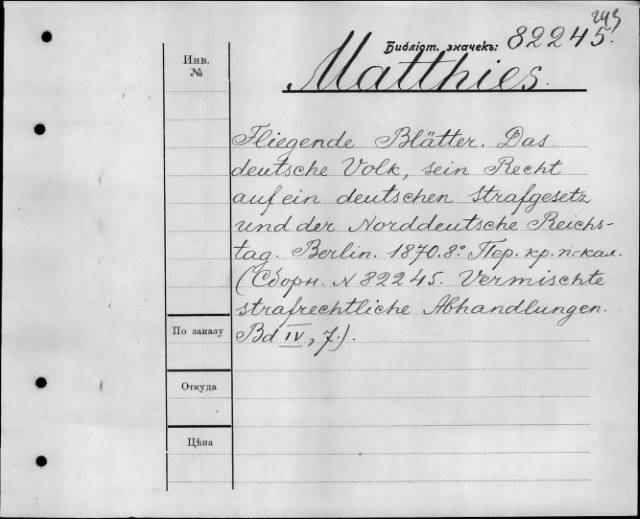 243
Библіот. значекъ: 82245.
Matthies.
Инв.
№
Fliegende Blätter. Das
deutsche Volk, sein Recht
auf ein deutschen Strafgesetz
und der Norddeutsche Reichs-
tag. Berlin. 1870. 8.° Пер. кр. п-кал.
(Сборн. N 82245. Vermischte
strafrechtliche Abhandlungen.
Bd IV, 7.).
По заказу
Откуда
Цѣна